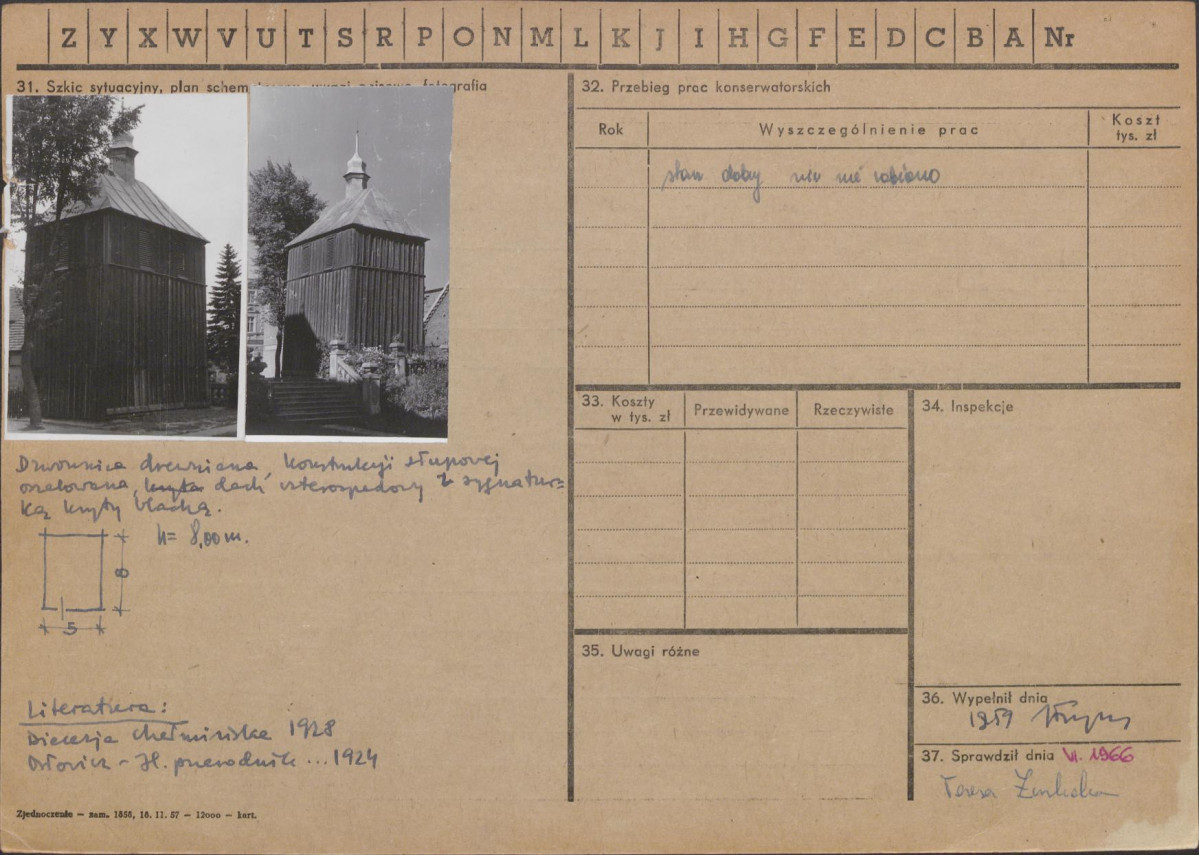 Z Y X W V U T S R P O N M L K J I H G F E D C B A Nr
31. Szkic sytuacyjny, plan schem
fotografia
Dzwonnica drewniana, konstrukcji słupowej
oszalowana, kryta dach czterospadowy z sygnatur=
ką kryty blachą.
h = 8,00 m.
8
5
Literatura:
Diecezja chełmińska 1928
Orłowicz - Il. przewodnik ... 1924
Zjednoczenie — zam. 1856, 16. 11. 57 — 12000 — kart.
32. Przebieg prac konserwatorskich
Rok
Wyszczególnienie prac
Koszt
tys. zł
stan dobry nic nie robiono
33. Koszty
w tys. zł
Przewidywane
Rzeczywiste
34. Inspekcje
35. Uwagi różne
36. Wypełnił dnia
1959
37. Sprawdził dnia VI. 1966
Teresa